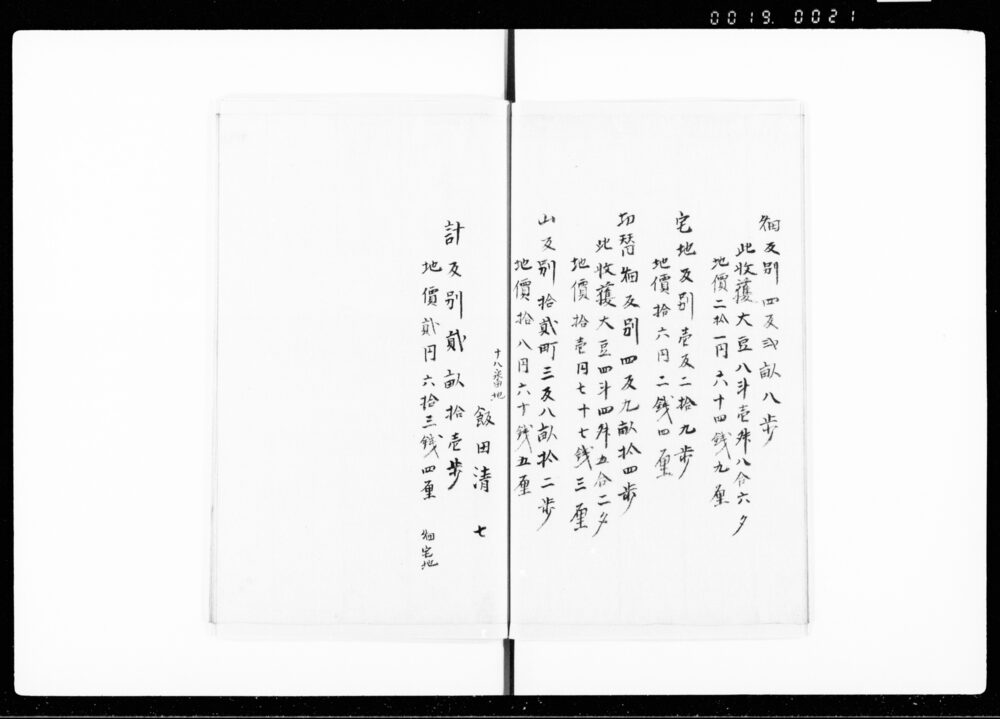 0019. 0021
畑反別四反弐畝八歩
此收穫大豆八斗壱升八合六夕
地價二拾一円六十四銭九厘
宅地反別壱反二拾九歩
地價拾六円二銭四厘
切替畑反別四反九畝拾四歩
此收穫大豆四斗四升五合二夕
地價拾壱円七十七銭三厘
山反別拾貳町三反八畝拾二歩
地價拾八円六十銭五厘
十八番地
飯田清七
計反別貳畝拾壱歩
地價貳円六拾三銭四厘
畑宅地